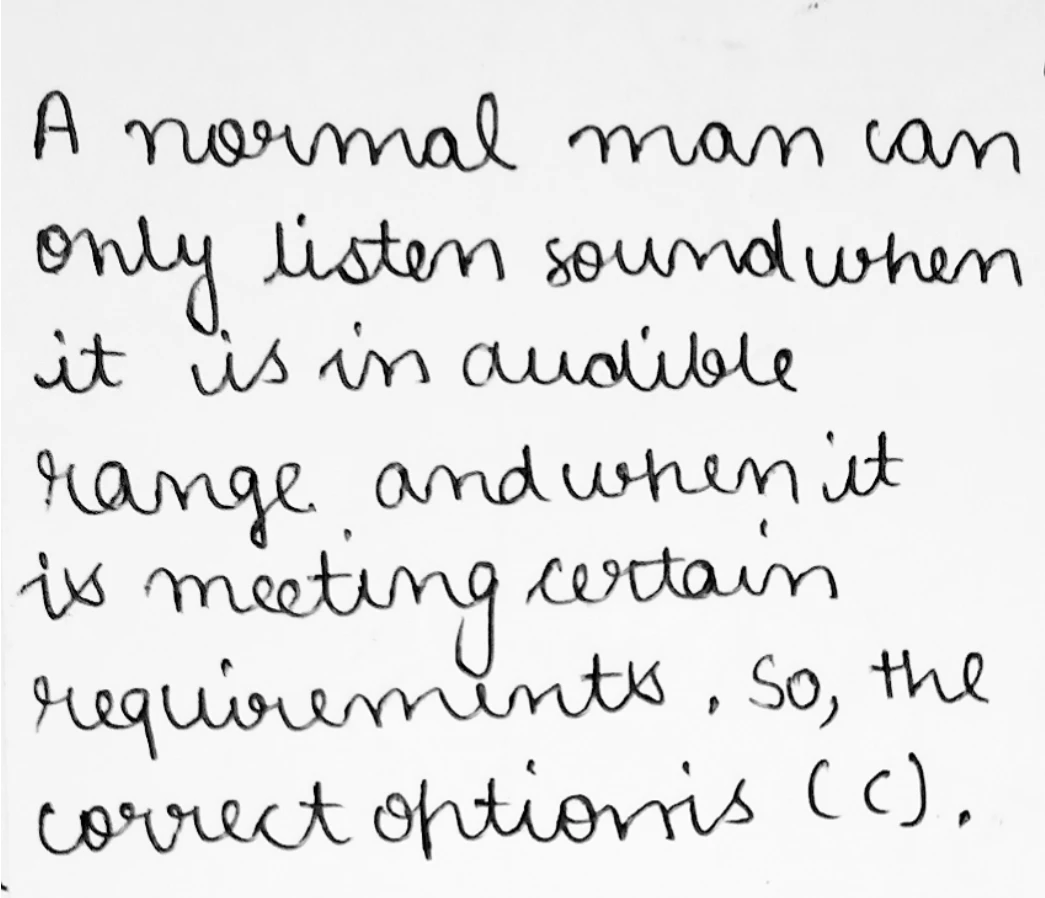 A normal man can
only listen sound when
it is in audible
range and when it
is meeting certain
requirements. So, the
correct option is (C).